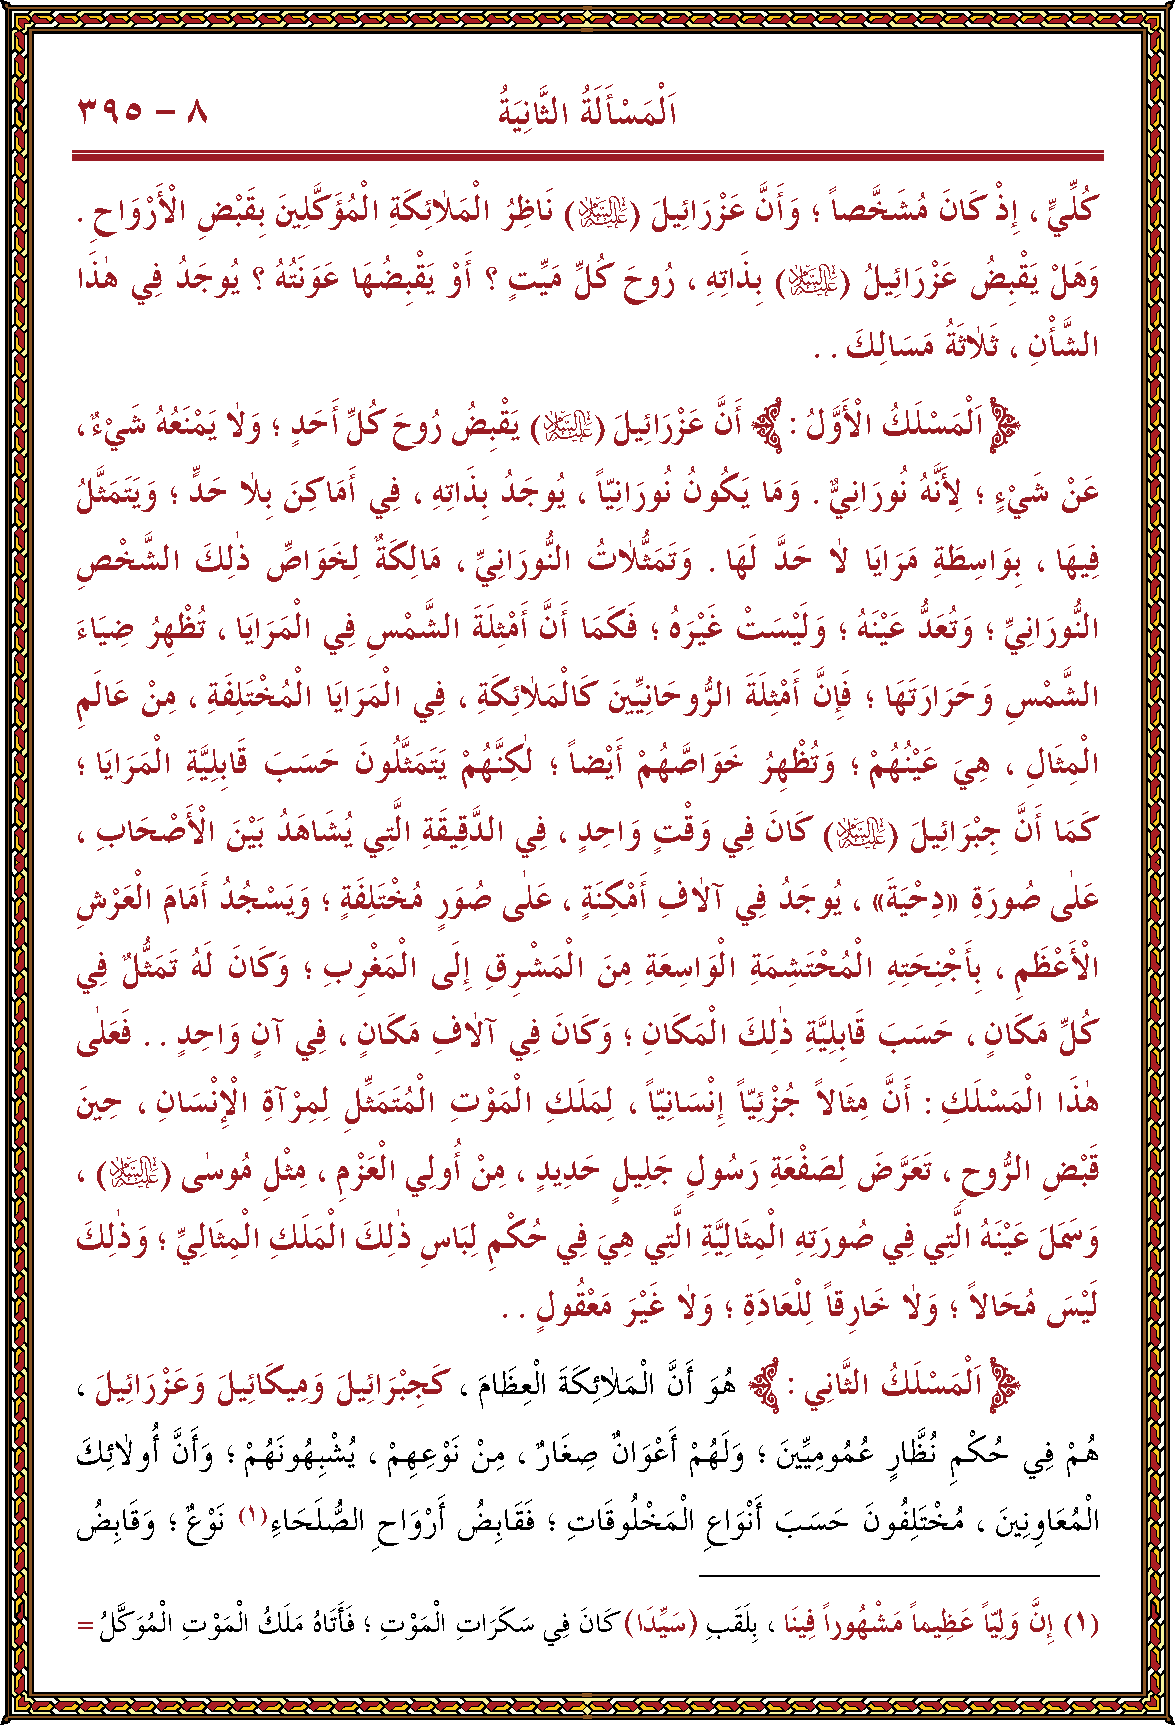 اَلْمَسْأَلَةُ الثَّانِيَةُ ٨ – ٣٩٥
كُلِّيٍّ ، إِذْ كَانَ مُشَخَّصاً ؛ وَأَنَّ عَزْرَائِيلَ (عليه السلام) نَاظِرُ الْمَلَائِكَةِ الْمُؤَكَّلِينَ بِقَبْضِ الْأَرْوَاحِ .
وَهَلْ يَقْبِضُ عَزْرَائِيلُ (عليه السلام) بِذَاتِهِ ، رُوحَ كُلِّ مَيِّتٍ ؟ أَوْ يَقْبِضُهَا عَوَنَتُهُ ؟ يُوجَدُ فِي هٰذَا
الشَّأْنِ ، ثَلَاثَةُ مَسَالِكَ . .
اَلْمَسْلَكُ الْأَوَّلُ : أَنَّ عَزْرَائِيلَ (عليه السلام) يَقْبِضُ رُوحَ كُلِّ أَحَدٍ ؛ وَلَا يَمْنَعُهُ شَيْءٌ ،
عَنْ شَيْءٍ ؛ لِأَنَّهُ نُورَانِيٌّ . وَمَا يَكُونُ نُورَانِيّاً ، يُوجَدُ بِذَاتِهِ ، فِي أَمَاكِنَ بِلَا حَدٍّ ؛ وَيَتَمَثَّلُ
فِيهَا ، بِوَاسِطَةِ مَرَايَا لَا حَدَّ لَهَا . وَتَمَثُّلَاتُ النُّورَانِيِّ ، مَالِكَةٌ لِخَوَاصِّ ذٰلِكَ الشَّخْصِ
النُّورَانِيِّ ؛ وَتُعَدُّ عَيْنَهُ ؛ وَلَيْسَتْ غَيْرَهُ ؛ فَكَمَا أَنَّ أَمْثِلَةَ الشَّمْسِ فِي الْمَرَايَا ، تُظْهِرُ ضِيَاءَ
الشَّمْسِ وَحَرَارَتَهَا ؛ فَإِنَّ أَمْثِلَةَ الرُّوحَانِيِّينَ كَالْمَلَائِكَةِ ، فِي الْمَرَايَا الْمُخْتَلِفَةِ ، مِنْ عَالَمِ
الْمِثَالِ ، هِيَ عَيْنُهُمْ ؛ وَتُظْهِرُ خَوَاصَّهُمْ أَيْضاً ؛ لٰكِنَّهُمْ يَتَمَثَّلُونَ حَسَبَ قَابِلِيَّةِ الْمَرَايَا ؛
كَمَا أَنَّ جِبْرَائِيلَ (عليه السلام) كَانَ فِي وَقْتٍ وَاحِدٍ ، فِي الدَّقِيقَةِ الَّتِي يُشَاهَدُ بَيْنَ الْأَصْحَابِ ،
عَلٰى صُورَةِ «دِحْيَةَ» ، يُوجَدُ فِي آلَافِ أَمْكِنَةٍ ، عَلٰى صُوَرٍ مُخْتَلِفَةٍ ؛ وَيَسْجُدُ أَمَامَ الْعَرْشِ
الْأَعْظَمِ ، بِأَجْنِحَتِهِ الْمُحْتَشِمَةِ الْوَاسِعَةِ مِنَ الْمَشْرِقِ إِلَى الْمَغْرِبِ ؛ وَكَانَ لَهُ تَمَثُّلٌ فِي
كُلِّ مَكَانٍ ، حَسَبَ قَابِلِيَّةِ ذٰلِكَ الْمَكَانِ ؛ وَكَانَ فِي آلَافِ مَكَانٍ ، فِي آنٍ وَاحِدٍ . . فَعَلٰى
هٰذَا الْمَسْلَكِ : أَنَّ مِثَالاً جُزْئِيّاً إِنْسَانِيّاً ، لِمَلَكِ الْمَوْتِ الْمُتَمَثِّلِ لِمِرْآةِ الْإِنْسَانِ ، حِينَ
قَبْضِ الرُّوحِ ، تَعَرَّضَ لِصَفْعَةِ رَسُولٍ جَلِيلٍ حَدِيدٍ ، مِنْ أُولِي الْعَزْمِ ، مِثْلِ مُوسٰى (عليه السلام) ،
وَسَمَلَ عَيْنَهُ الَّتِي فِي صُورَتِهِ الْمِثَالِيَّةِ الَّتِي هِيَ فِي حُكْمِ لِبَاسِ ذٰلِكَ الْمَلَكِ الْمِثَالِيِّ ؛ وَذٰلِكَ
لَيْسَ مُحَالاً ؛ وَلَا خَارِقاً لِلْعَادَةِ ؛ وَلَا غَيْرَ مَعْقُولٍ . .
اَلْمَسْلَكُ الثَّانِي : هُوَ أَنَّ الْمَلَائِكَةَ الْعِظَامَ ، كَجِبْرَائِيلَ وَمِيكَائِيلَ وَعَزْرَائِيلَ ،
هُمْ فِي حُكْمِ نُظَّارٍ عُمُومِيِّينَ ؛ وَلَهُمْ أَعْوَانٌ صِغَارٌ ، مِنْ نَوْعِهِمْ ، يُشْبِهُونَهُمْ ؛ وَأَنَّ أُولَائِكَ
الْمُعَاوِنِينَ ، مُخْتَلِفُونَ حَسَبَ أَنْوَاعِ الْمَخْلُوقَاتِ ؛ فَقَابِضُ أَرْوَاحِ الصُّلَحَاءِ(١) نَوْعٌ ؛ وَقَابِضُ
(١) إِنَّ وَلِيّاً عَظِيماً مَشْهُوراً فِينَا ، بِلَقَبِ (سَيِّدَا) كَانَ فِي سَكَرَاتِ الْمَوْتِ ؛ فَأَتَاهُ مَلَكُ الْمَوْتِ الْمُوَكَّلُ =